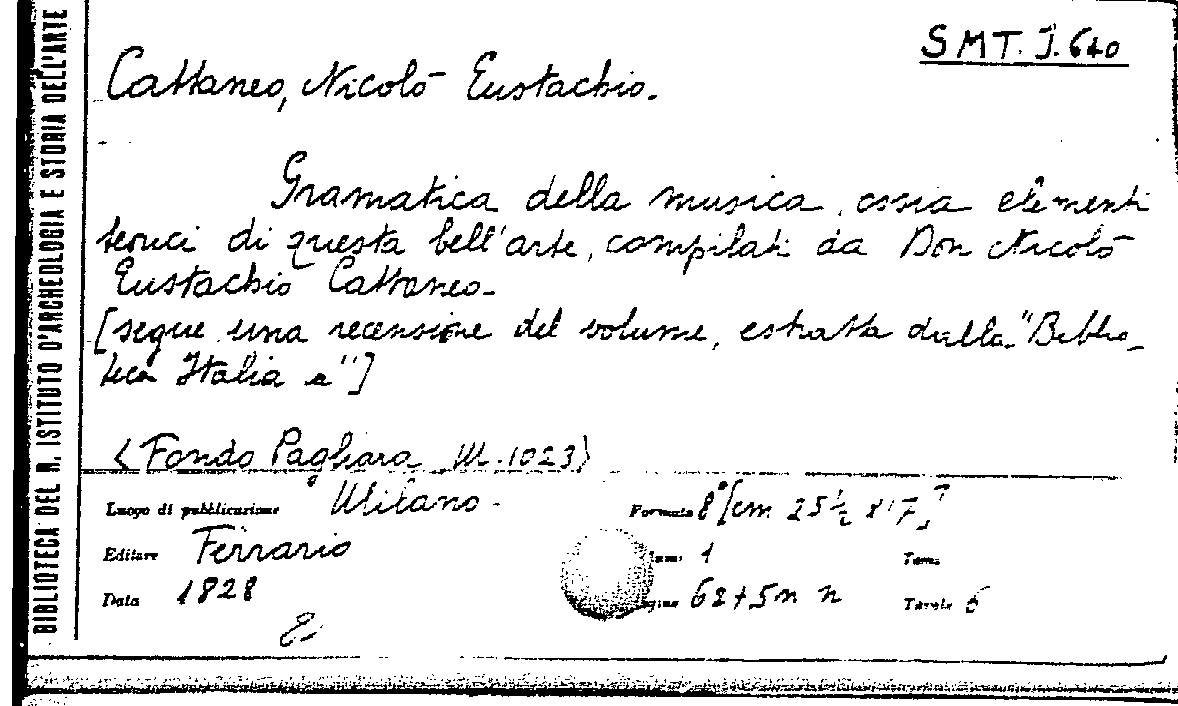 BIBLIOTECA DEL R. ISTITUTO D'ARCHEOLOGIA E STORIA DELL'ARTE
SMT. J. 640
Cattaneo, Nicolò Eustachio.
Gramatica della musica, ossia elementi
teorici di questa bell'arte, compilati da Don Nicolò
Eustachio Cattaneo.
[segue una recensione del volume, estratta dalla "Biblio-
teca Italia a"]
<Fondo Pagliara M. 1023>
Luogo di pubblicazione Milano. Formato 8° [cm 25½ x 17]
Editore Ferrario 1 Tom.
Data 1828 62+5 n n Tavole 6